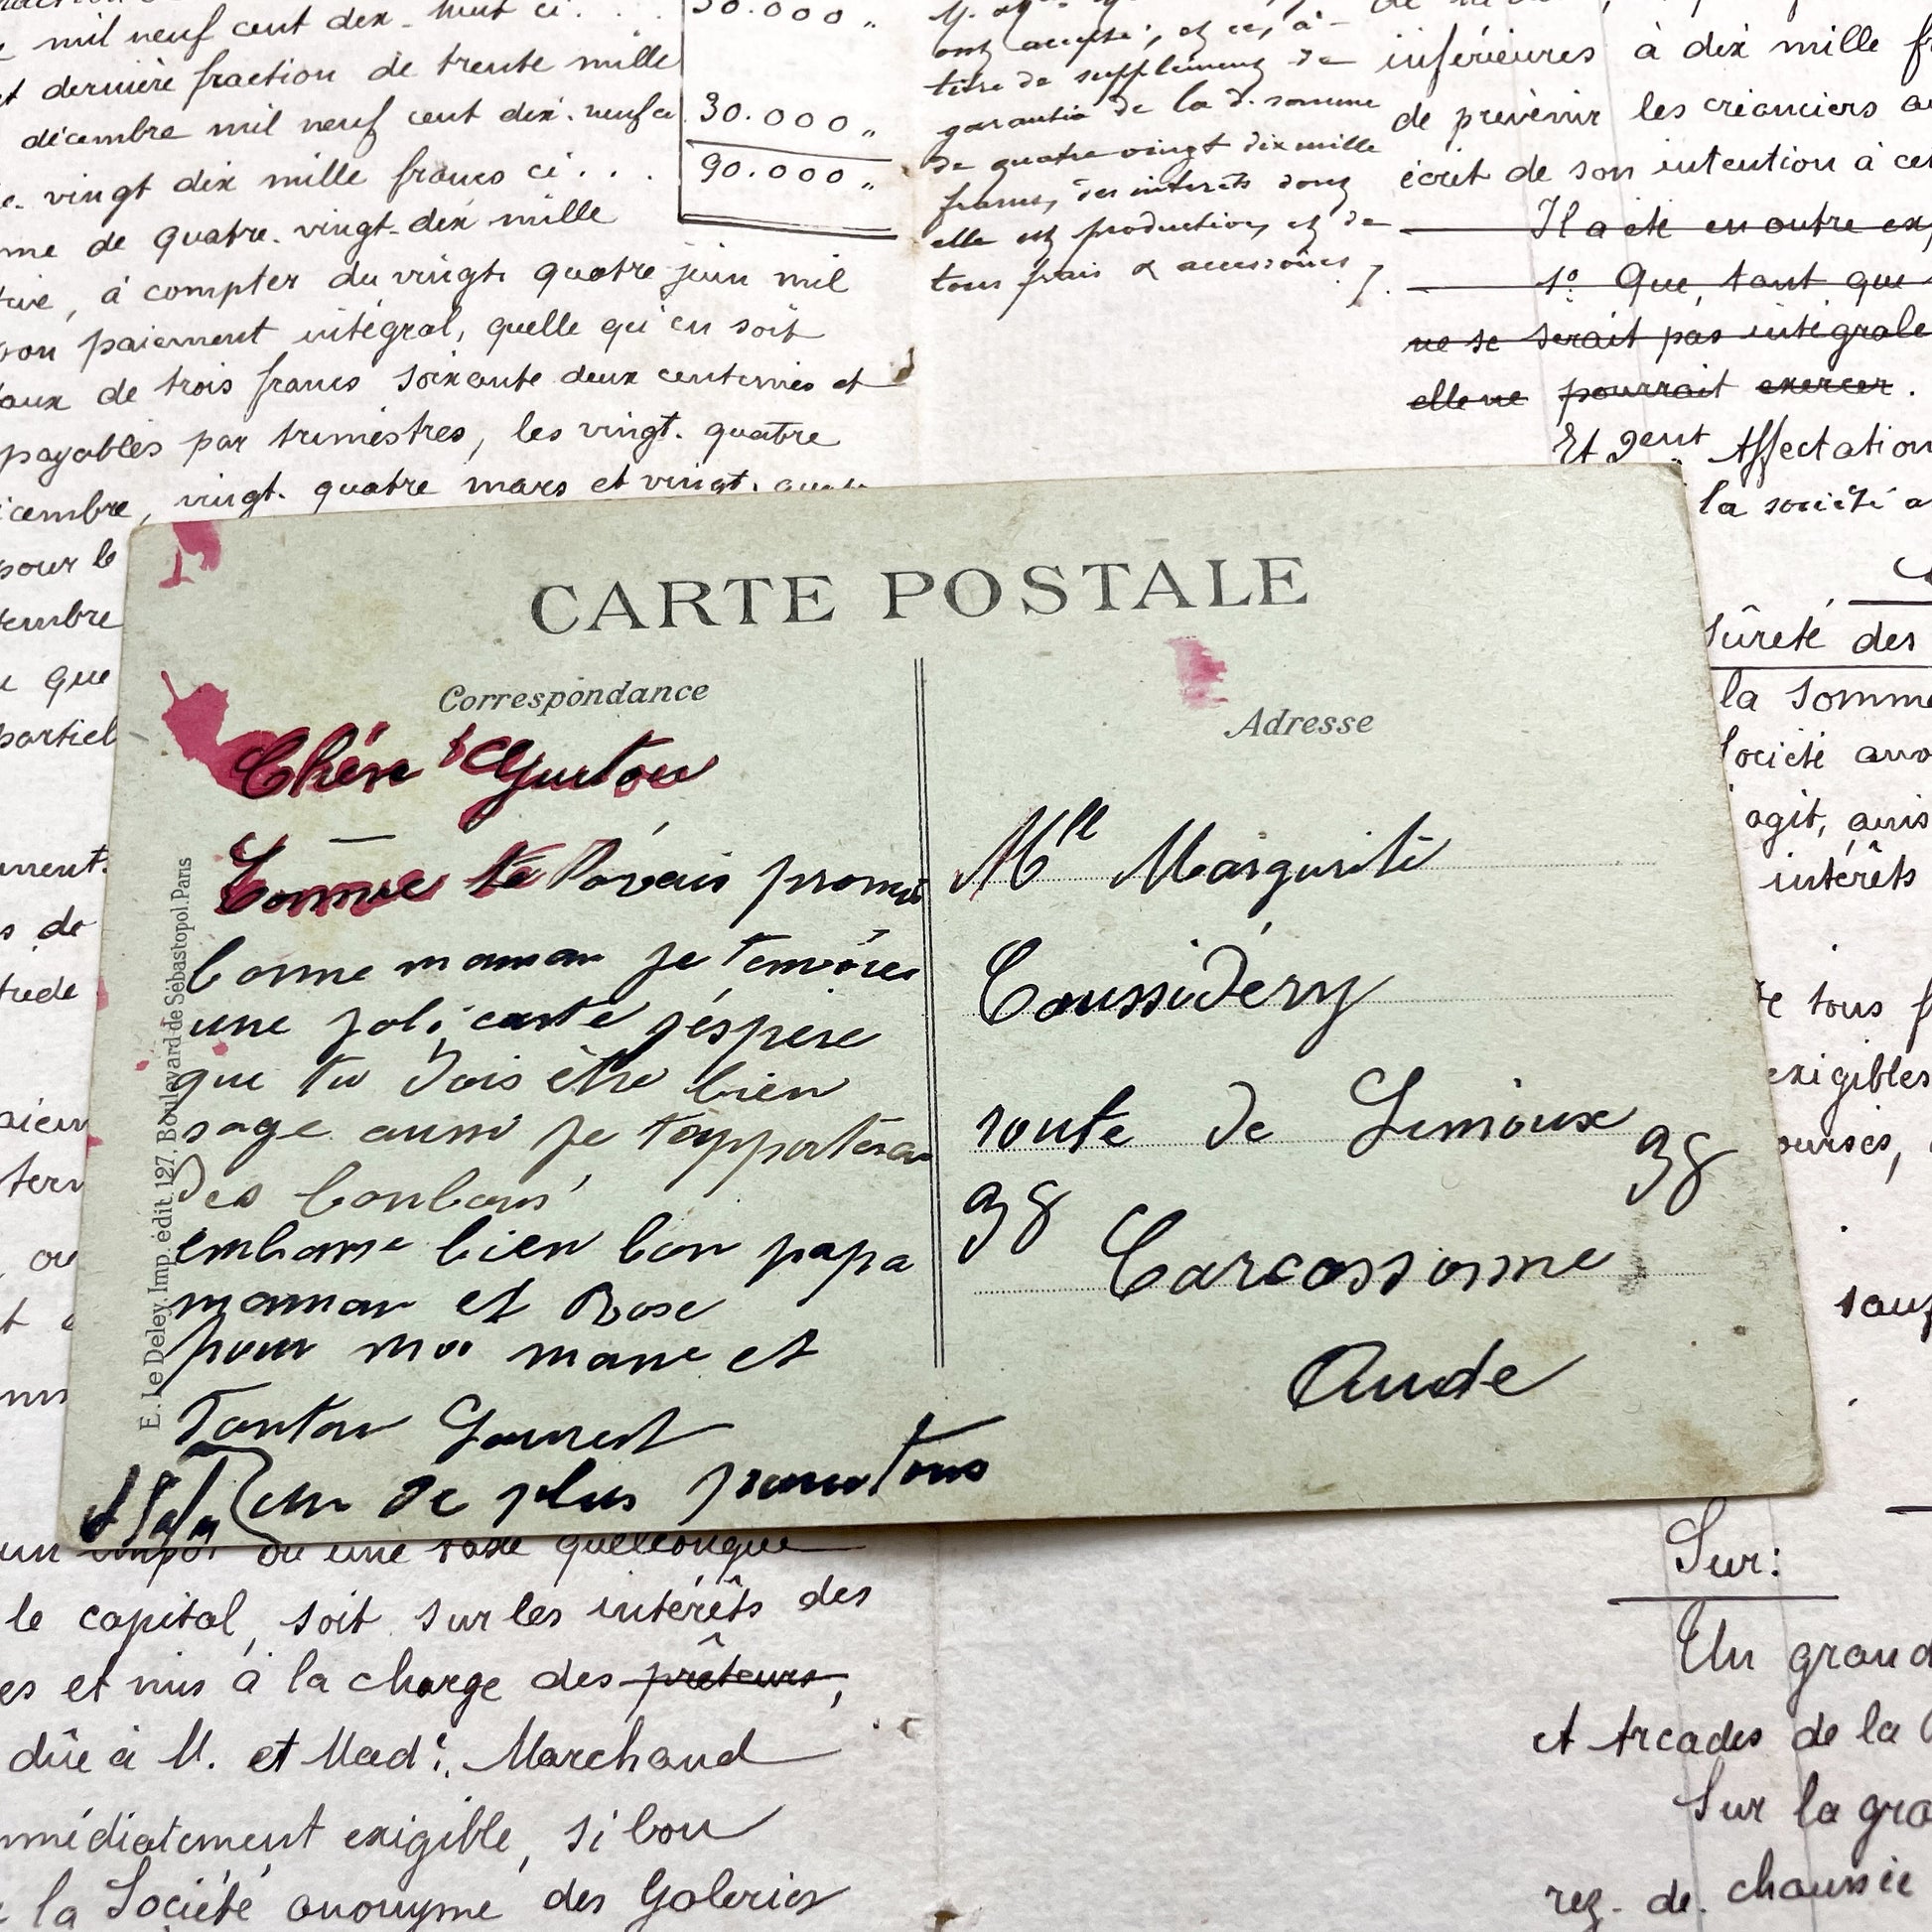 mil neuf cent dix-huit ci . . .
30.000 "
et dernière fraction de trente mille
décembre mil neuf cent dix-neuf ci
30.000 "
vingt dix mille francs ci . . .
90.000 "
de quatre-vingt-dix mille
à compter du vingt quatre juin mil
son paiement intégral, quelle qu'en soit
taux de trois francs soixante deux centimes et
payables par trimestres, les vingt-quatre
vingt-quatre mars et vingt-quatre
pour le
que
ont accepté, et ce, à
titre de supplément de
garantie de la d. somme
de quatre-vingt dix mille
francs, des intérêts dont
elle est production, et de
tous frais & accessoires
inférieures à dix mille
de prévenir les créanciers
écrit de son intention à
Il a été en outre
1º Que, tant que
ne se serait pas
elle ne pourrait exercer.
Et Affectation
la société a
Sûreté des
la somme
agit,
intérêts
tous
exigibles
CARTE POSTALE
Correspondance
Adresse
E. Le Deley, Imp. édit. 127, Boulevard de Sébastopol. Paris
Chère
Comme te l'avais promi
bonne maman je t'envoies
une joli carte j'éspère
que tu dois être bien
sage aussi je t'apporterai
des bonbons
embrasse bien bon papa
maman et Rose
pour moi mame et
Tonton
un de plus pour tous
Mlle Marguerite
Coussidéry
route de Limoux 38
38 Carcassonne
Aude
un impôt ou une taxe quelconque
le capital, soit sur les intérêts des
et mis à la charge des prêteurs,
dûe à M. et Made. Marchand
immédiatement exigible, si bon
la Société anonyme des Galeries
Sur:
Un grand
et Arcades de la
Sur la
rez-de-chaussée